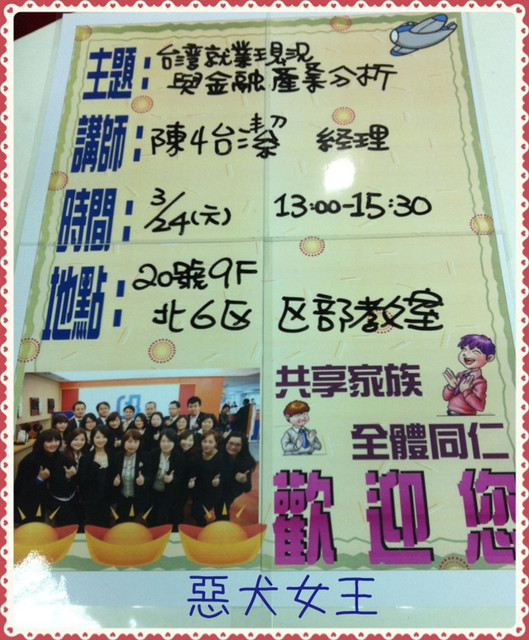 主題：台灣就業現況
與金融產業分折
講師：陳怡潔 經理
時間：3/24(元) 13:00-15:30
地點：20號9F
北6区 区部教室
共享家族
全體同仁
歡迎您
惡犬女王